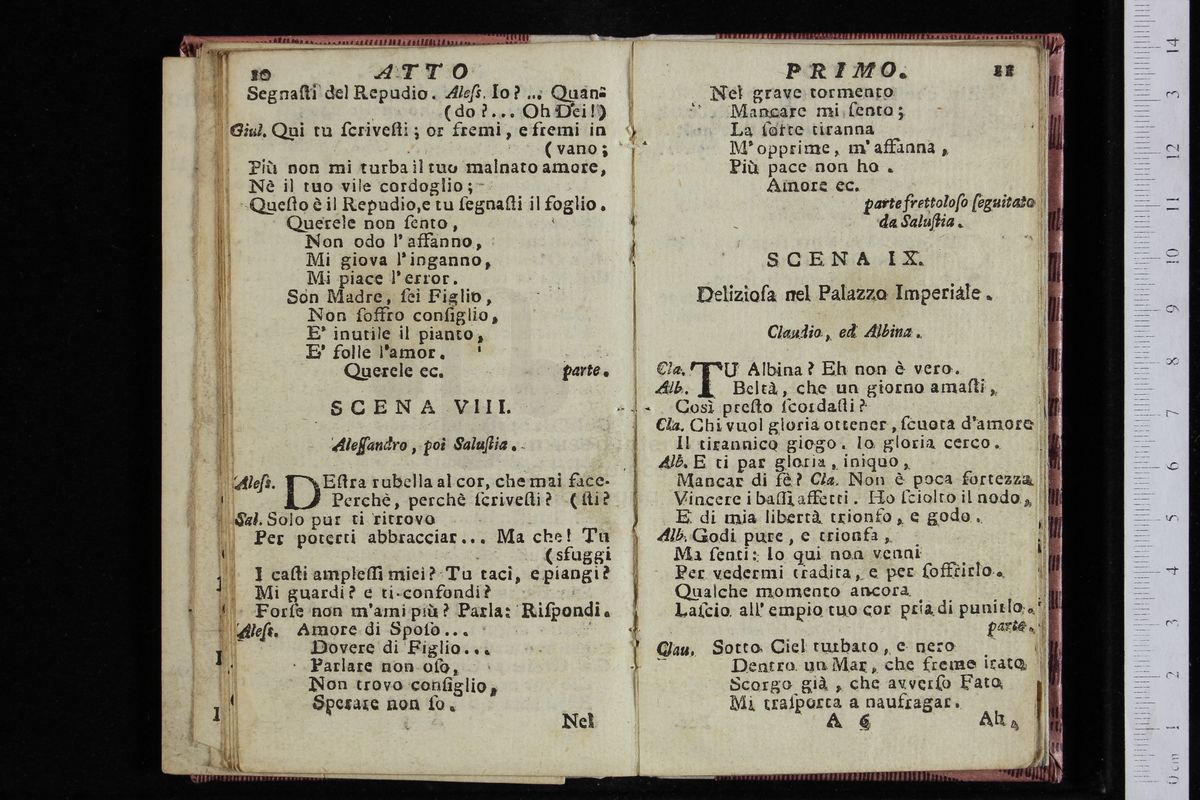 10 ATTO
Segnaſti del Repudio. Aleſs. Io? ... Quan-
(do?... Oh Dei!)
Giul. Qui tu ſcriveſti; or fremi, e fremi in
(vano;
Più non mi turba il tuo malnato amore,
Nè il tuo vile cordoglio;
Queſto è il Repudio, e tu ſegnaſti il foglio.
Querele non ſento,
Non odo l'affanno,
Mi giova l'inganno,
Mi piace l'error.
Son Madre, ſei Figlio,
Non ſoffro conſiglio,
E' inutile il pianto,
E' folle l'amor.
Querele ec. parte.
SCENA VIII.
Aleſſandro, poi Saluſtia.
Aleſs. DEſtra rubella al cor, che mai face-
Perchè, perchè ſcriveſti? (ſti?
Sal. Solo pur ti ritrovo
Per poterti abbracciar... Ma che! Tu
(sfuggi
I caſti ampleſſi miei? Tu taci, e piangi?
Mi guardi? e ti confondi?
Forſe non m'ami più? Parla: Riſpondi.
Aleſs. Amore di Spoſo...
Dovere di Figlio...
Parlare non oſo,
Non trovo conſiglio,
Sperare non ſo.
Nel
PRIMO. 11
Nel grave tormento
Mancare mi ſento;
La ſorte tiranna
M'opprime, m'affanna,
Più pace non ho.
Amore ec.
parte frettoloſo ſeguitato
da Saluſtia.
SCENA IX.
Delizioſa nel Palazzo Imperiale.
Claudio, ed Albina.
Cla. TU Albina? Eh non è vero.
Alb. Beltà, che un giorno amaſti,
Così preſto ſcordaſti?
Cla. Chi vuol gloria ottener, ſcuota d'amore
Il tirannico giogo. Io gloria cerco.
Alb. E ti par gloria, iniquo,
Mancar di fè? Cla. Non è poca fortezza
Vincere i baſſi affetti. Ho ſciolto il nodo,
E di mia libertà trionfo, e godo.
Alb. Godi pure, e trionfa,
Ma ſenti: Io qui non venni
Per vedermi tradita, e per ſoffrirlo.
Qualche momento ancora
Laſcio all'empio tuo cor pria di punirlo.
parte.
Clau. Sotto Ciel turbato, e nero
Dentro un Mar, che freme irato
Scorgo già, che avverſo Fato
Mi traſporta a naufragar.
A 6 Ah,